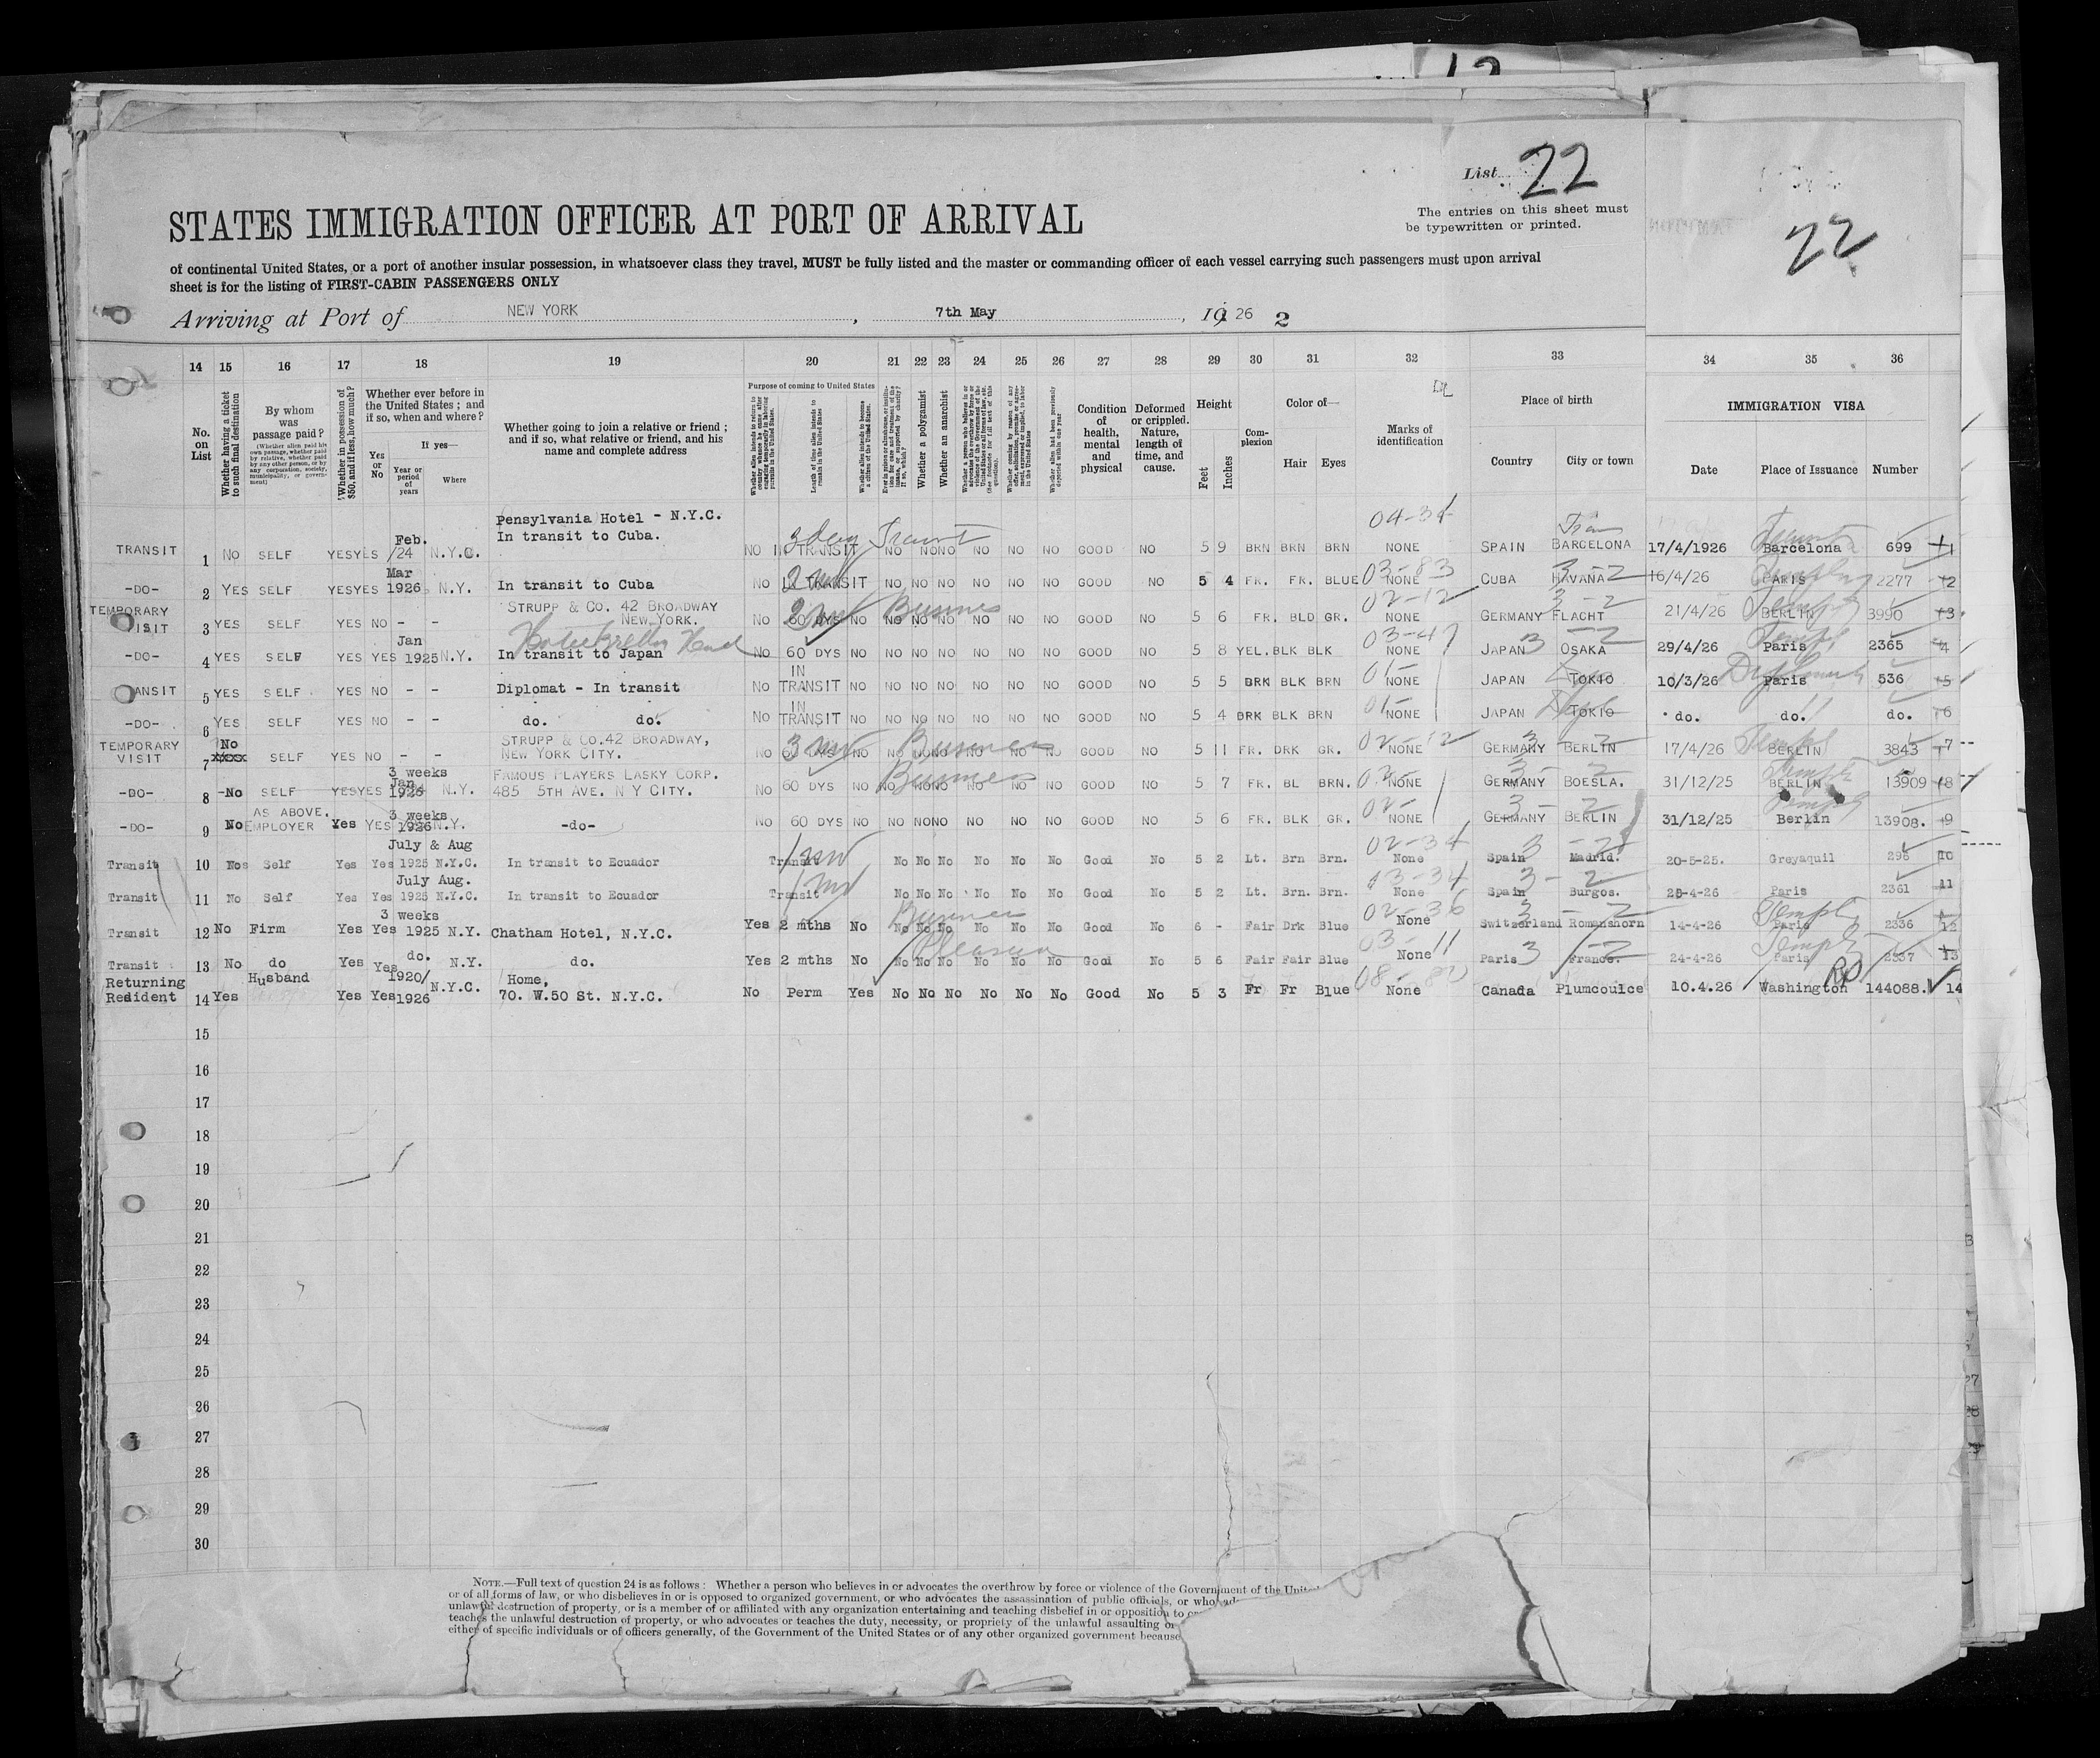 List 22
STATES IMMIGRATION OFFICER AT PORT OF ARRIVAL
The entries on this sheet must
be typewritten or printed.
22
of continental United States, or a port of another insular possession, in whatsoever class they travel, MUST be fully listed and the master or commanding officer of each vessel carrying such passengers must upon arrival
sheet is for the listing of FIRST-CABIN PASSENGERS ONLY
Arriving at Port of NEW YORK, 7th May, 1926 2
14 15 16 17 18 19 20 21 22 23 24 25 26 27 28 29 30 31 32 33 34 35 36
No. on List
Whether having a ticket to such final destination
By whom was passage paid?
Whether in possession of $50, and if less, how much?
Whether ever before in the United States; and if so, when and where?
Yes or No
If yes—
Year or period of years
Where
Whether going to join a relative or friend; and if so, what relative or friend, and his name and complete address
Purpose of coming to United States
Whether a polygamist
Whether an anarchist
Condition of health, mental and physical
Deformed or crippled. Nature, length of time, and cause.
Height
Feet Inches
Complexion
Color of—
Hair Eyes
Marks of identification
Place of birth
Country City or town
IMMIGRATION VISA
Date Place of Issuance Number
Pensylvania Hotel - N.Y.C.
TRANSIT 1 NO SELF YES YES Feb. /24 N.Y.C. In transit to Cuba. NO IN TRANSIT 3 day Transit NO NO NO NO NO NO GOOD NO 5 9 BRN BRN BRN 04-34 NONE SPAIN BARCELONA 17/4/1926 Barcelona 699 1
-DO- 2 YES SELF YES YES Mar 1926 N.Y. In transit to Cuba NO IN TRANSIT NO NO NO NO NO NO GOOD NO 5 4 FR. FR. BLUE 03-83 NONE CUBA HAVANA 16/4/26 PARIS 2277 2
TEMPORARY VISIT 3 YES SELF YES NO - - STRUPP & CO. 42 BROADWAY NEW YORK. NO 60 DYS NO Business NO NO NO NO NO NO GOOD NO 5 6 FR. BLD GR. 02-12 NONE GERMANY FLACHT 21/4/26 BERLIN 3990 3
-DO- 4 YES SELF YES YES Jan 1925 N.Y. In transit to Japan NO 60 DYS NO NO NO NO NO NO NO GOOD NO 5 8 YEL. BLK BLK 03-47 NONE JAPAN OSAKA 29/4/26 Paris 2365 4
ANSIT 5 YES SELF YES NO - - Diplomat - In transit NO IN TRANSIT NO NO NO NO NO NO NO GOOD NO 5 5 DRK BLK BRN 01- NONE JAPAN TOKIO 10/3/26 Paris 536 5
-DO- 6 YES SELF YES NO - - do. do. NO IN TRANSIT NO NO NO NO NO NO NO GOOD NO 5 4 DRK BLK BRN 01- NONE JAPAN TOKIO do. do. do. 6
TEMPORARY VISIT 7 No SELF YES NO - - STRUPP & CO. 42 BROADWAY, NEW YORK CITY. NO 60 DYS NO Business NO NO NO NO NO NO GOOD NO 5 11 FR. DRK GR. 02-12 NONE GERMANY BERLIN 17/4/26 BERLIN 3843 7
-DO- 8 No SELF YES YES 3 weeks N.Y. FAMOUS PLAYERS LASKY CORP. 485 5TH AVE. N Y CITY. NO 60 DYS NO Business NO NO NO NO NO NO GOOD NO 5 7 FR. BL BRN. 02- NONE GERMANY BOESLA. 31/12/25 BERLIN 13909 8
-DO- 9 No AS ABOVE. EMPLOYER Yes YES 3 weeks 1926 N.Y. -do- NO 60 DYS NO NO NO NO NO NO NO GOOD NO 5 6 FR. BLK GR. 02- NONE GERMANY BERLIN 31/12/25 Berlin 13908. 9
Transit 10 No Self Yes Yes July & Aug 1925 N.Y.C. In transit to Ecuador Transit No No No No No No Good No 5 2 Lt. Brn Brn. 02-34 None Spain Madrid. 20-5-25. Greyaquil 296 10
Transit 11 No Self Yes Yes July Aug. 1925 N.Y.C. In transit to Ecuador Transit No No No No No No Good No 5 2 Lt. Brn. Brn. 03-34 None Spain Burgos. 28-4-26 Paris 2361 11
Transit 12 No Firm Yes Yes 3 weeks 1925 N.Y. Chatham Hotel, N.Y.C. Yes 2 mths No Business No No No No No No Good No 6 - Fair Drk Blue 02-36 None Switzerland Romanshorn 14-4-26 Paris 2336 12
Transit 13 No do Yes Yes do. N.Y. do. Yes 2 mths No Pleasure No No No No No No Good No 5 6 Fair Fair Blue 03-11 None Paris France. 24-4-26 Paris 2337 13
Returning Resident 14 Yes Husband Yes Yes 1920/1926 N.Y.C. Home, 70. W.50 St. N.Y.C. No Perm Yes No No No No No No Good No 5 3 Fr Fr Blue 08-80 None Canada Plumcoulee 10.4.26 Washington 144088. 14
15
16
17
18
19
20
21
22
23
24
25
26
27
28
29
30
NOTE.—Full text of question 24 is as follows: Whether a person who believes in or advocates the overthrow by force or violence of the Government of the
or of all forms of law, or who disbelieves in or is opposed to organized government, or who advocates the assassination of public officials, or who
unlawful destruction of property, or is a member of or affiliated with any organization entertaining and teaching disbelief in or opposition to
teaches the unlawful destruction of property, or who advocates or teaches the duty, necessity, or propriety of the unlawful assaulting
either of specific individuals or of officers generally, of the Government of the United States or of any other organized government because